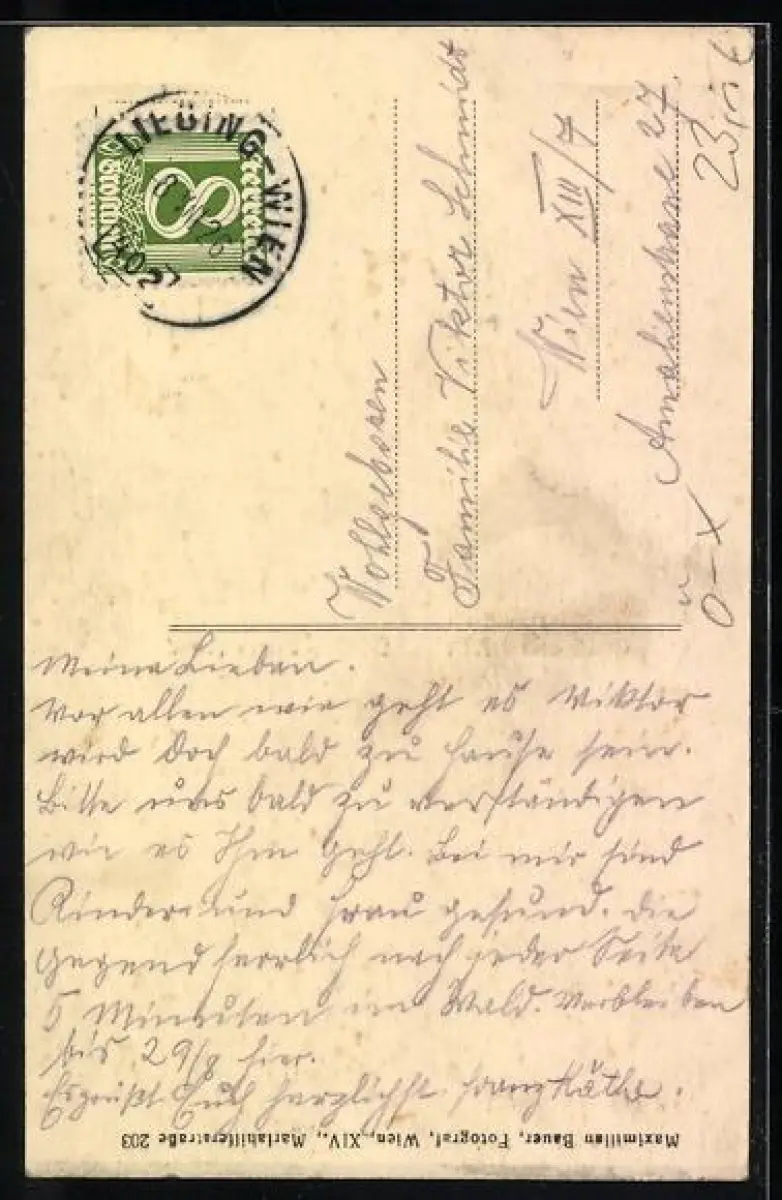 LIESING-WIEN
8
Wohlgeboren
Familie Viktor Schmidt
Wien XIII/7
Amalienstrasse 27
Meine Lieben.
Vor allen wie geht es Viktor
wird doch bald zu Hause sein.
Bitte uns bald zu verständigen
wie es Ihm geht. Bei mir sind
Kinder und Frau gesund. die
Gegend herrlich nach jeder Seite
5 Minuten im Wald. Verbleiben
bis 29/8 hier.
Es grüßt Euch herzlichst Franz Käthe.
Maximilian Bauer, Fotograf, Wien, XIV., Mariahilferstraße 203